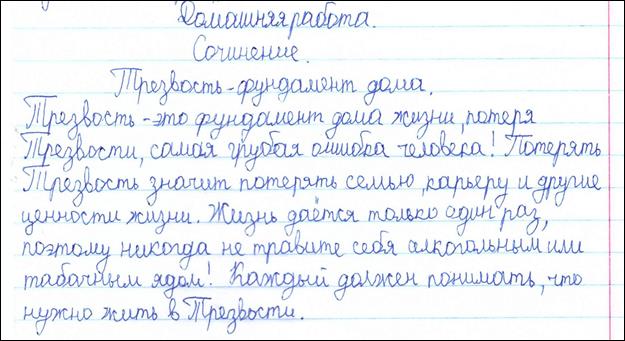 Домашняя работа.
Сочинение.
Трезвость - фундамент дома.
Трезвость - это фундамент дома жизни, потеря
Трезвости, самая грубая ошибка человека! Потерять
Трезвость значит потерять семью, карьеру и другие
ценности жизни. Жизнь даётся только один раз,
поэтому никогда не травите себя алкогольным или
табачным ядом! Каждый должен понимать, что
нужно жить в Трезвости.